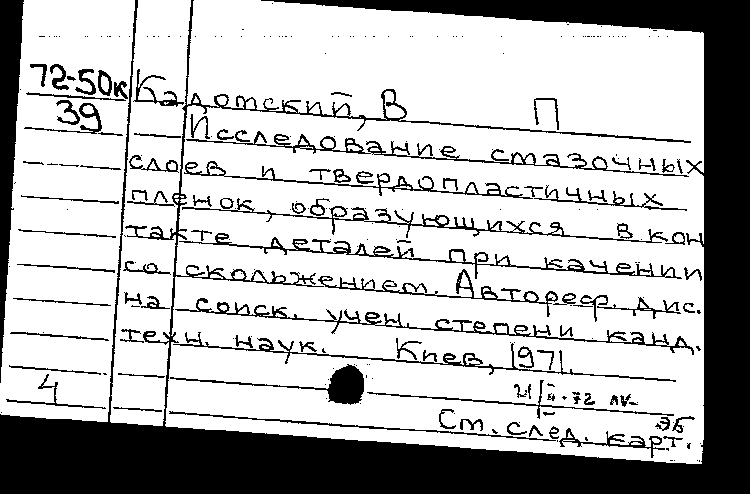 72-50к Кадотский, В П
39 Исследование смазочных
слоев и твердопластичных
пленок, образующихся в кон
такте деталей при качении
со скольжением. Автореф. дис.
на соиск. учен. степени канд.
техн. наук. Киев, 1971.
4
Ст. след. карт.